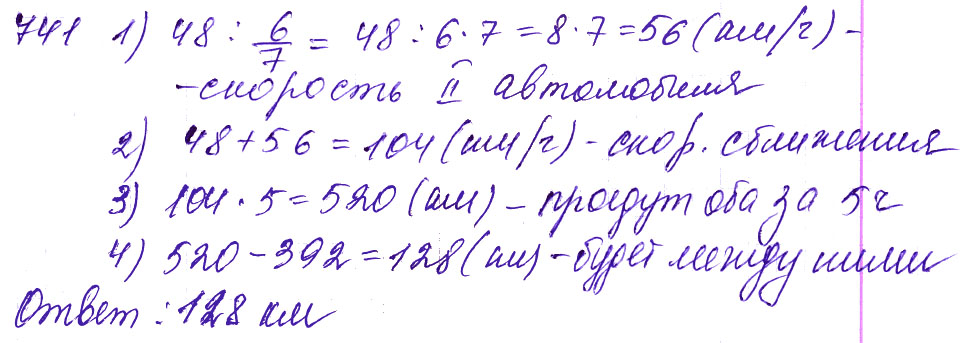 741 1) 48 : 6/7 = 48 : 6 · 7 = 8 · 7 = 56 (км/ч) -
- скорость II автомобиля
2) 48 + 56 = 104 (км/ч) - скор. сближения
3) 104 · 5 = 520 (км) - проедут оба за 5 ч
4) 520 - 392 = 128 (км) - будет между ними
Ответ : 128 км